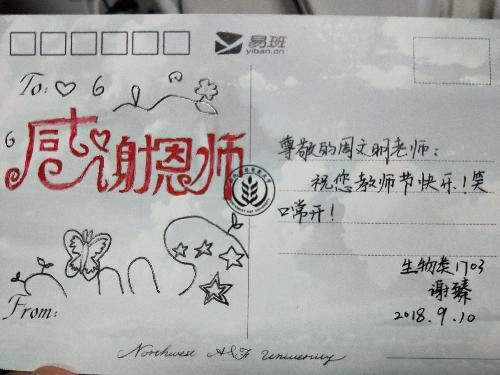 易班
yiban.cn
To: 6
6
感谢恩师
尊敬的周文明老师：
祝您教师节快乐！笑
口常开！
生物类1703
谢臻
2018.9.10
From:
Northwest A&F University